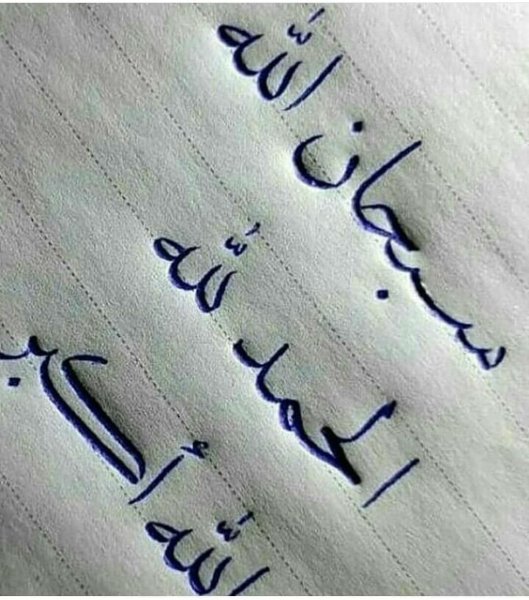 سبحان اللّٰه
الحمد للّٰه
اللّٰه أكبر